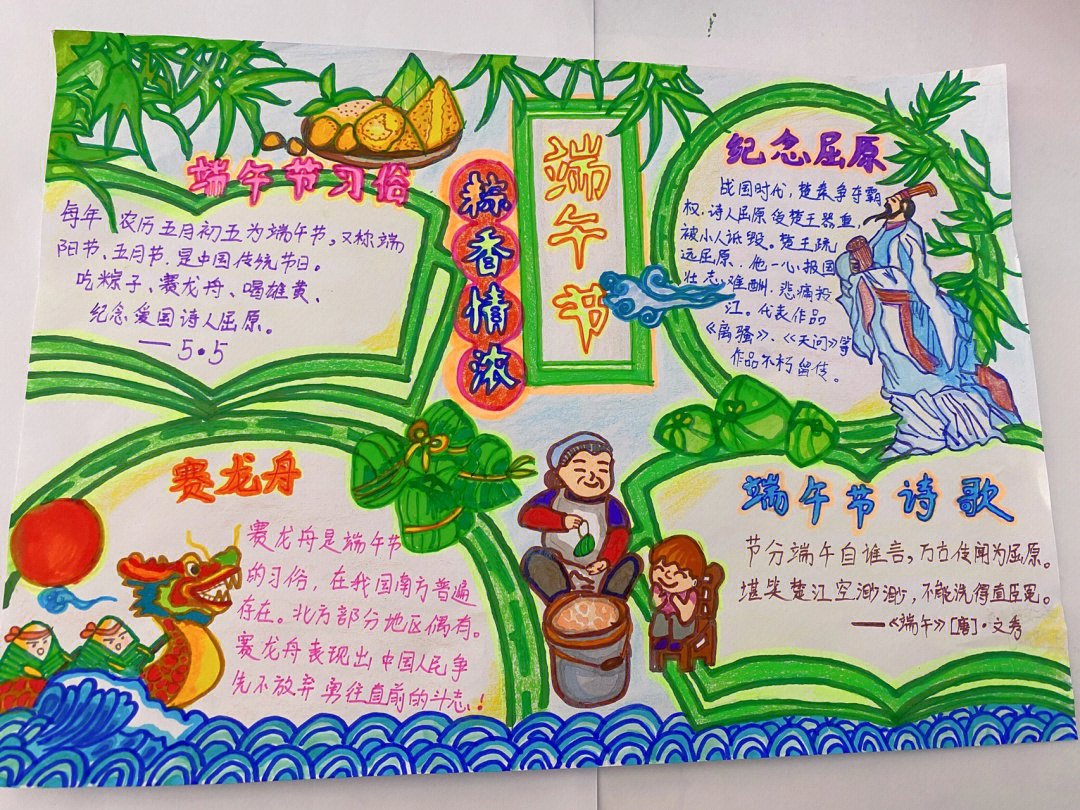 端午节
粽香情浓
端午节习俗
每年 农历五月初五为端午节。又称端
阳节、五月节.是中国传统节日。
吃粽子、赛龙舟、喝雄黄、
纪念爱国诗人屈原。
—5.5
纪念屈原
战国时代,楚秦争夺霸
权.诗人屈原 受楚王器重
被小人诋毁.楚王疏
远屈原.他一心报国
壮志难酬.悲痛投
江。代表作品
《离骚》、《天问》等
作品不朽留传。
赛龙舟
赛龙舟是端午节
的习俗,在我国南方普遍
存在。北方部分地区偶有。
赛龙舟表现出中国人民争
先不放弃勇往直前的斗志!
端午节诗歌
节分端午自谁言,万古传闻为屈原。
堪笑楚江空渺渺,不能洗得直臣冤。
——《端午》[唐]·文秀